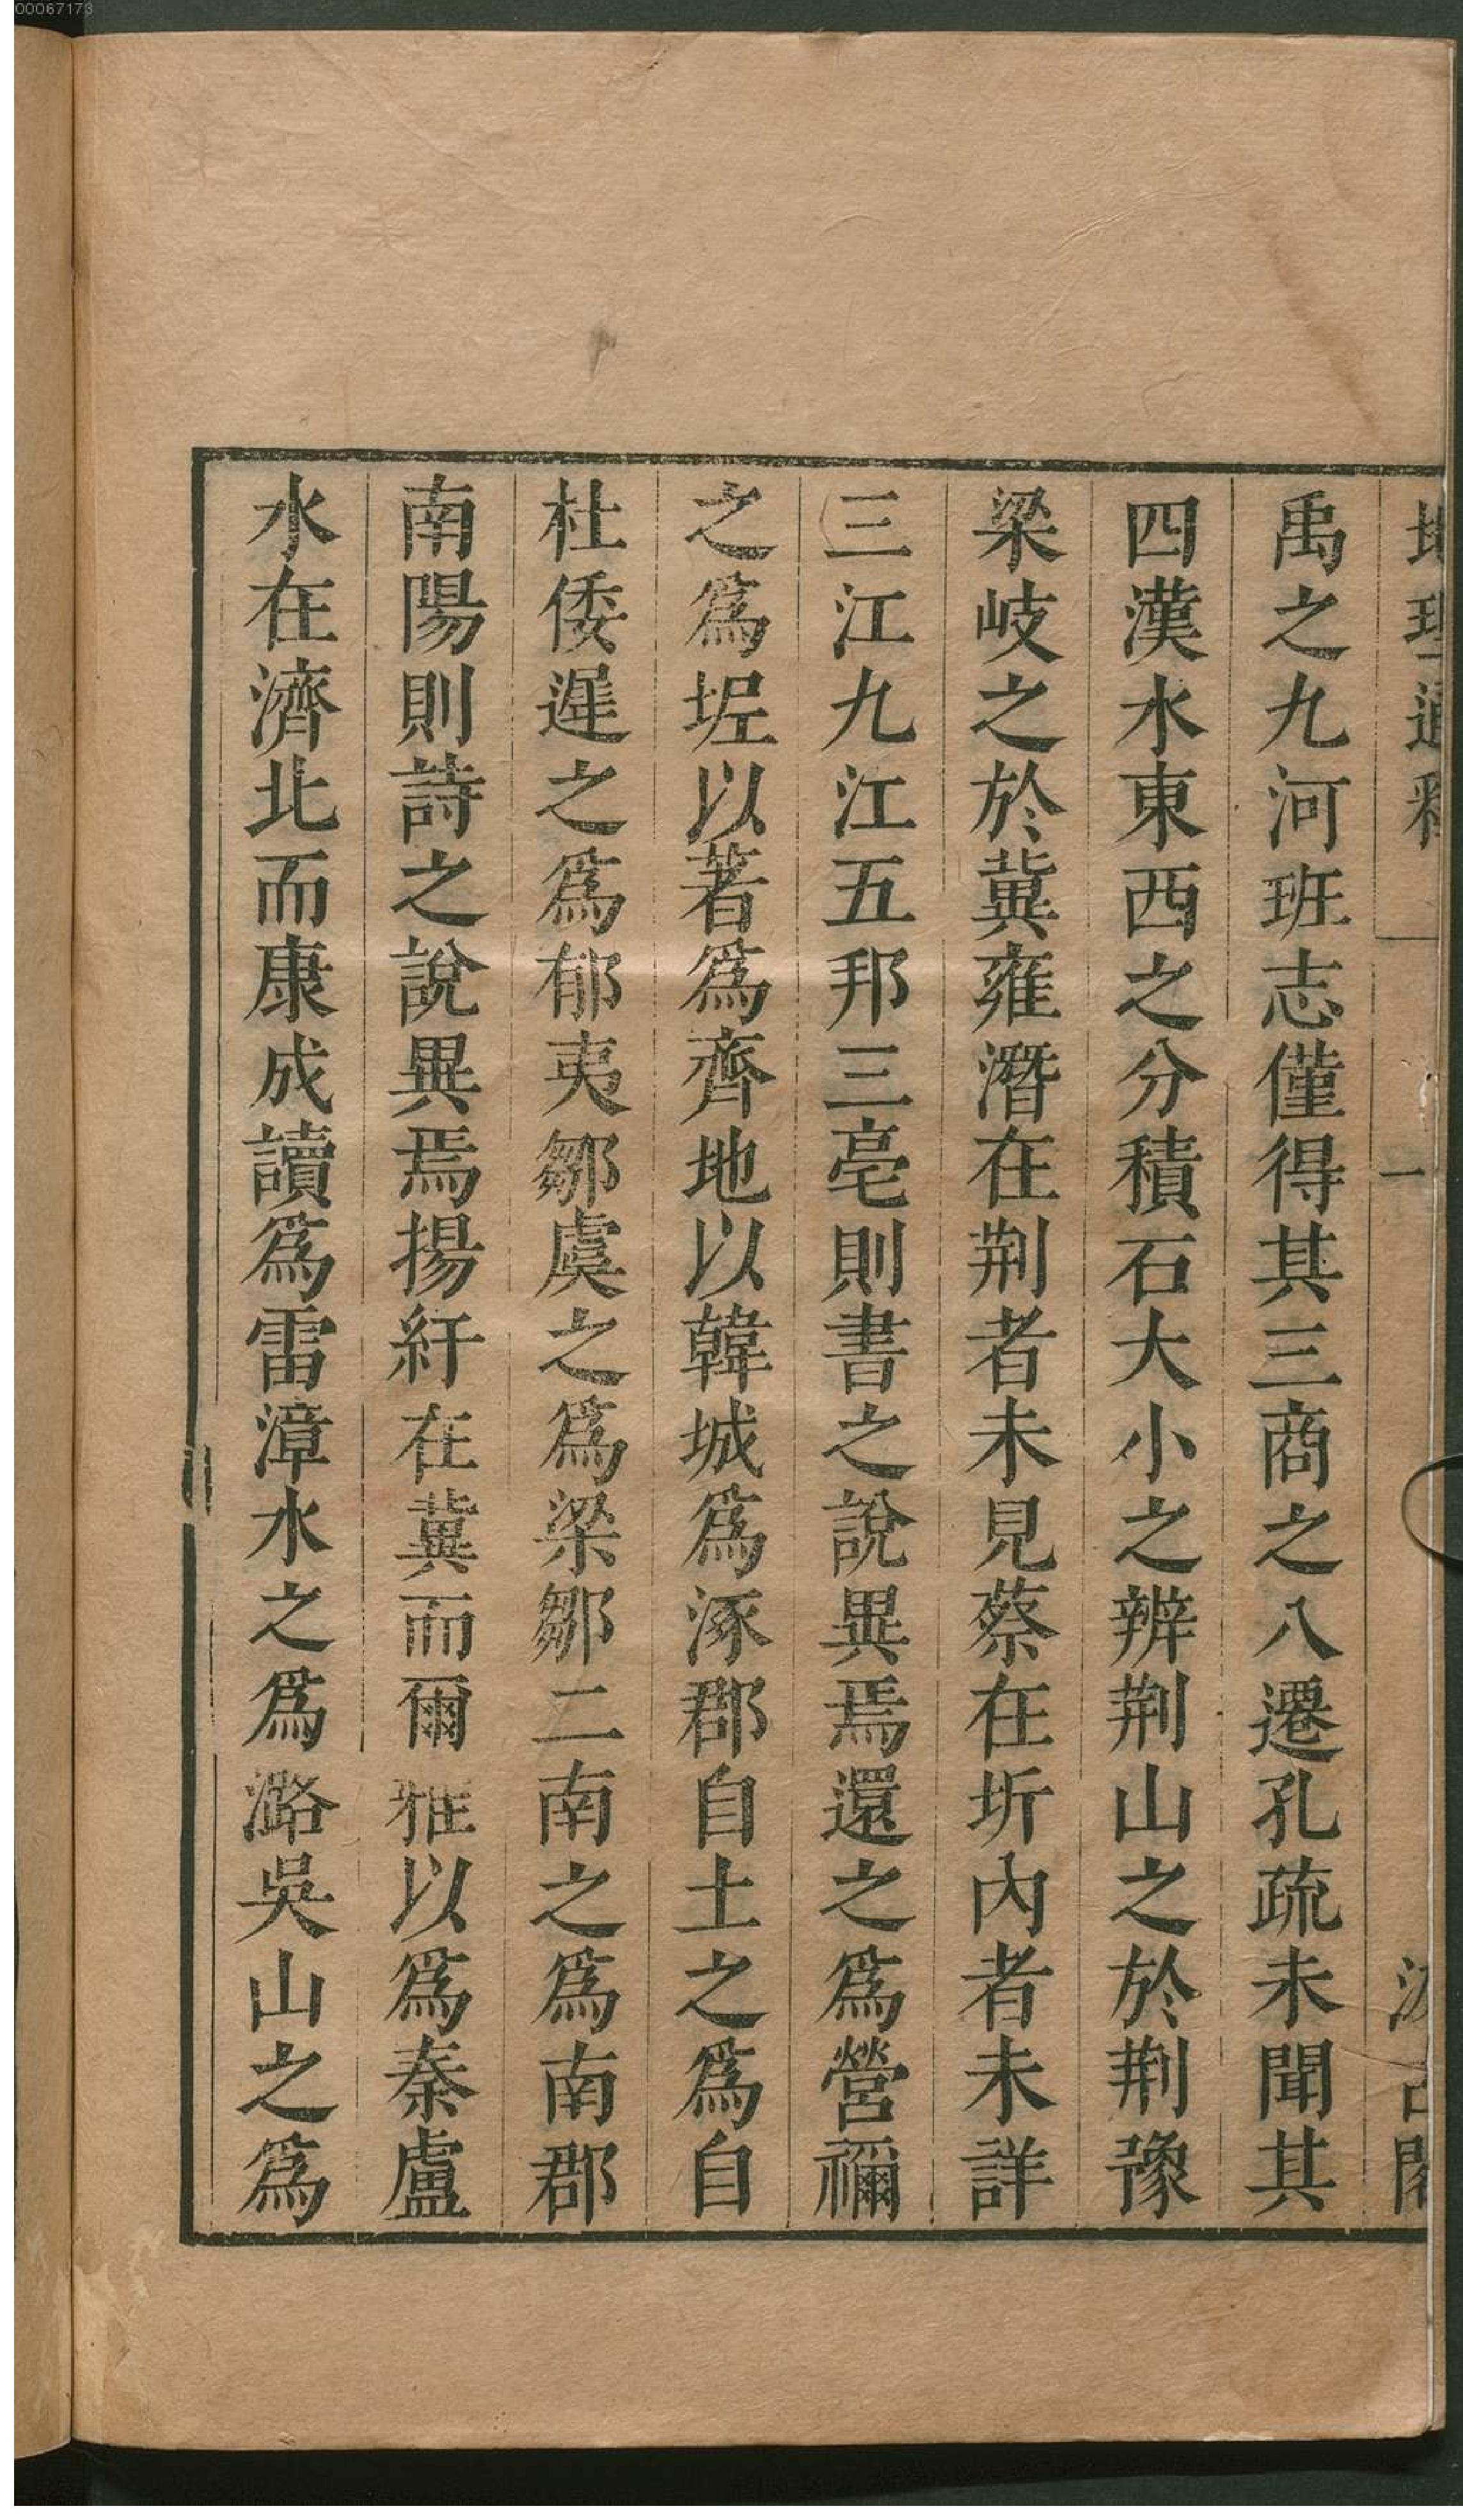 00067173
地理通釋
一
汲古閣
禹之九河班志僅得其三商之八遷孔疏未聞其
四漢水東西之分積石大小之辨荆山之於荆豫
梁岐之於冀雍潛在荆者未見蔡在圻內者未詳
三江九江五邦三亳則書之說異焉還之爲營禰
之爲坭以著爲齊地以韓城爲涿郡自土之爲自
杜倭遟之爲郁夷鄒虞之爲梁鄒二南之爲南郡
南陽則詩之說異焉揚紆在冀而爾雅以爲秦盧
水在濟北而康成讀爲雷漳水之爲潞吳山之爲